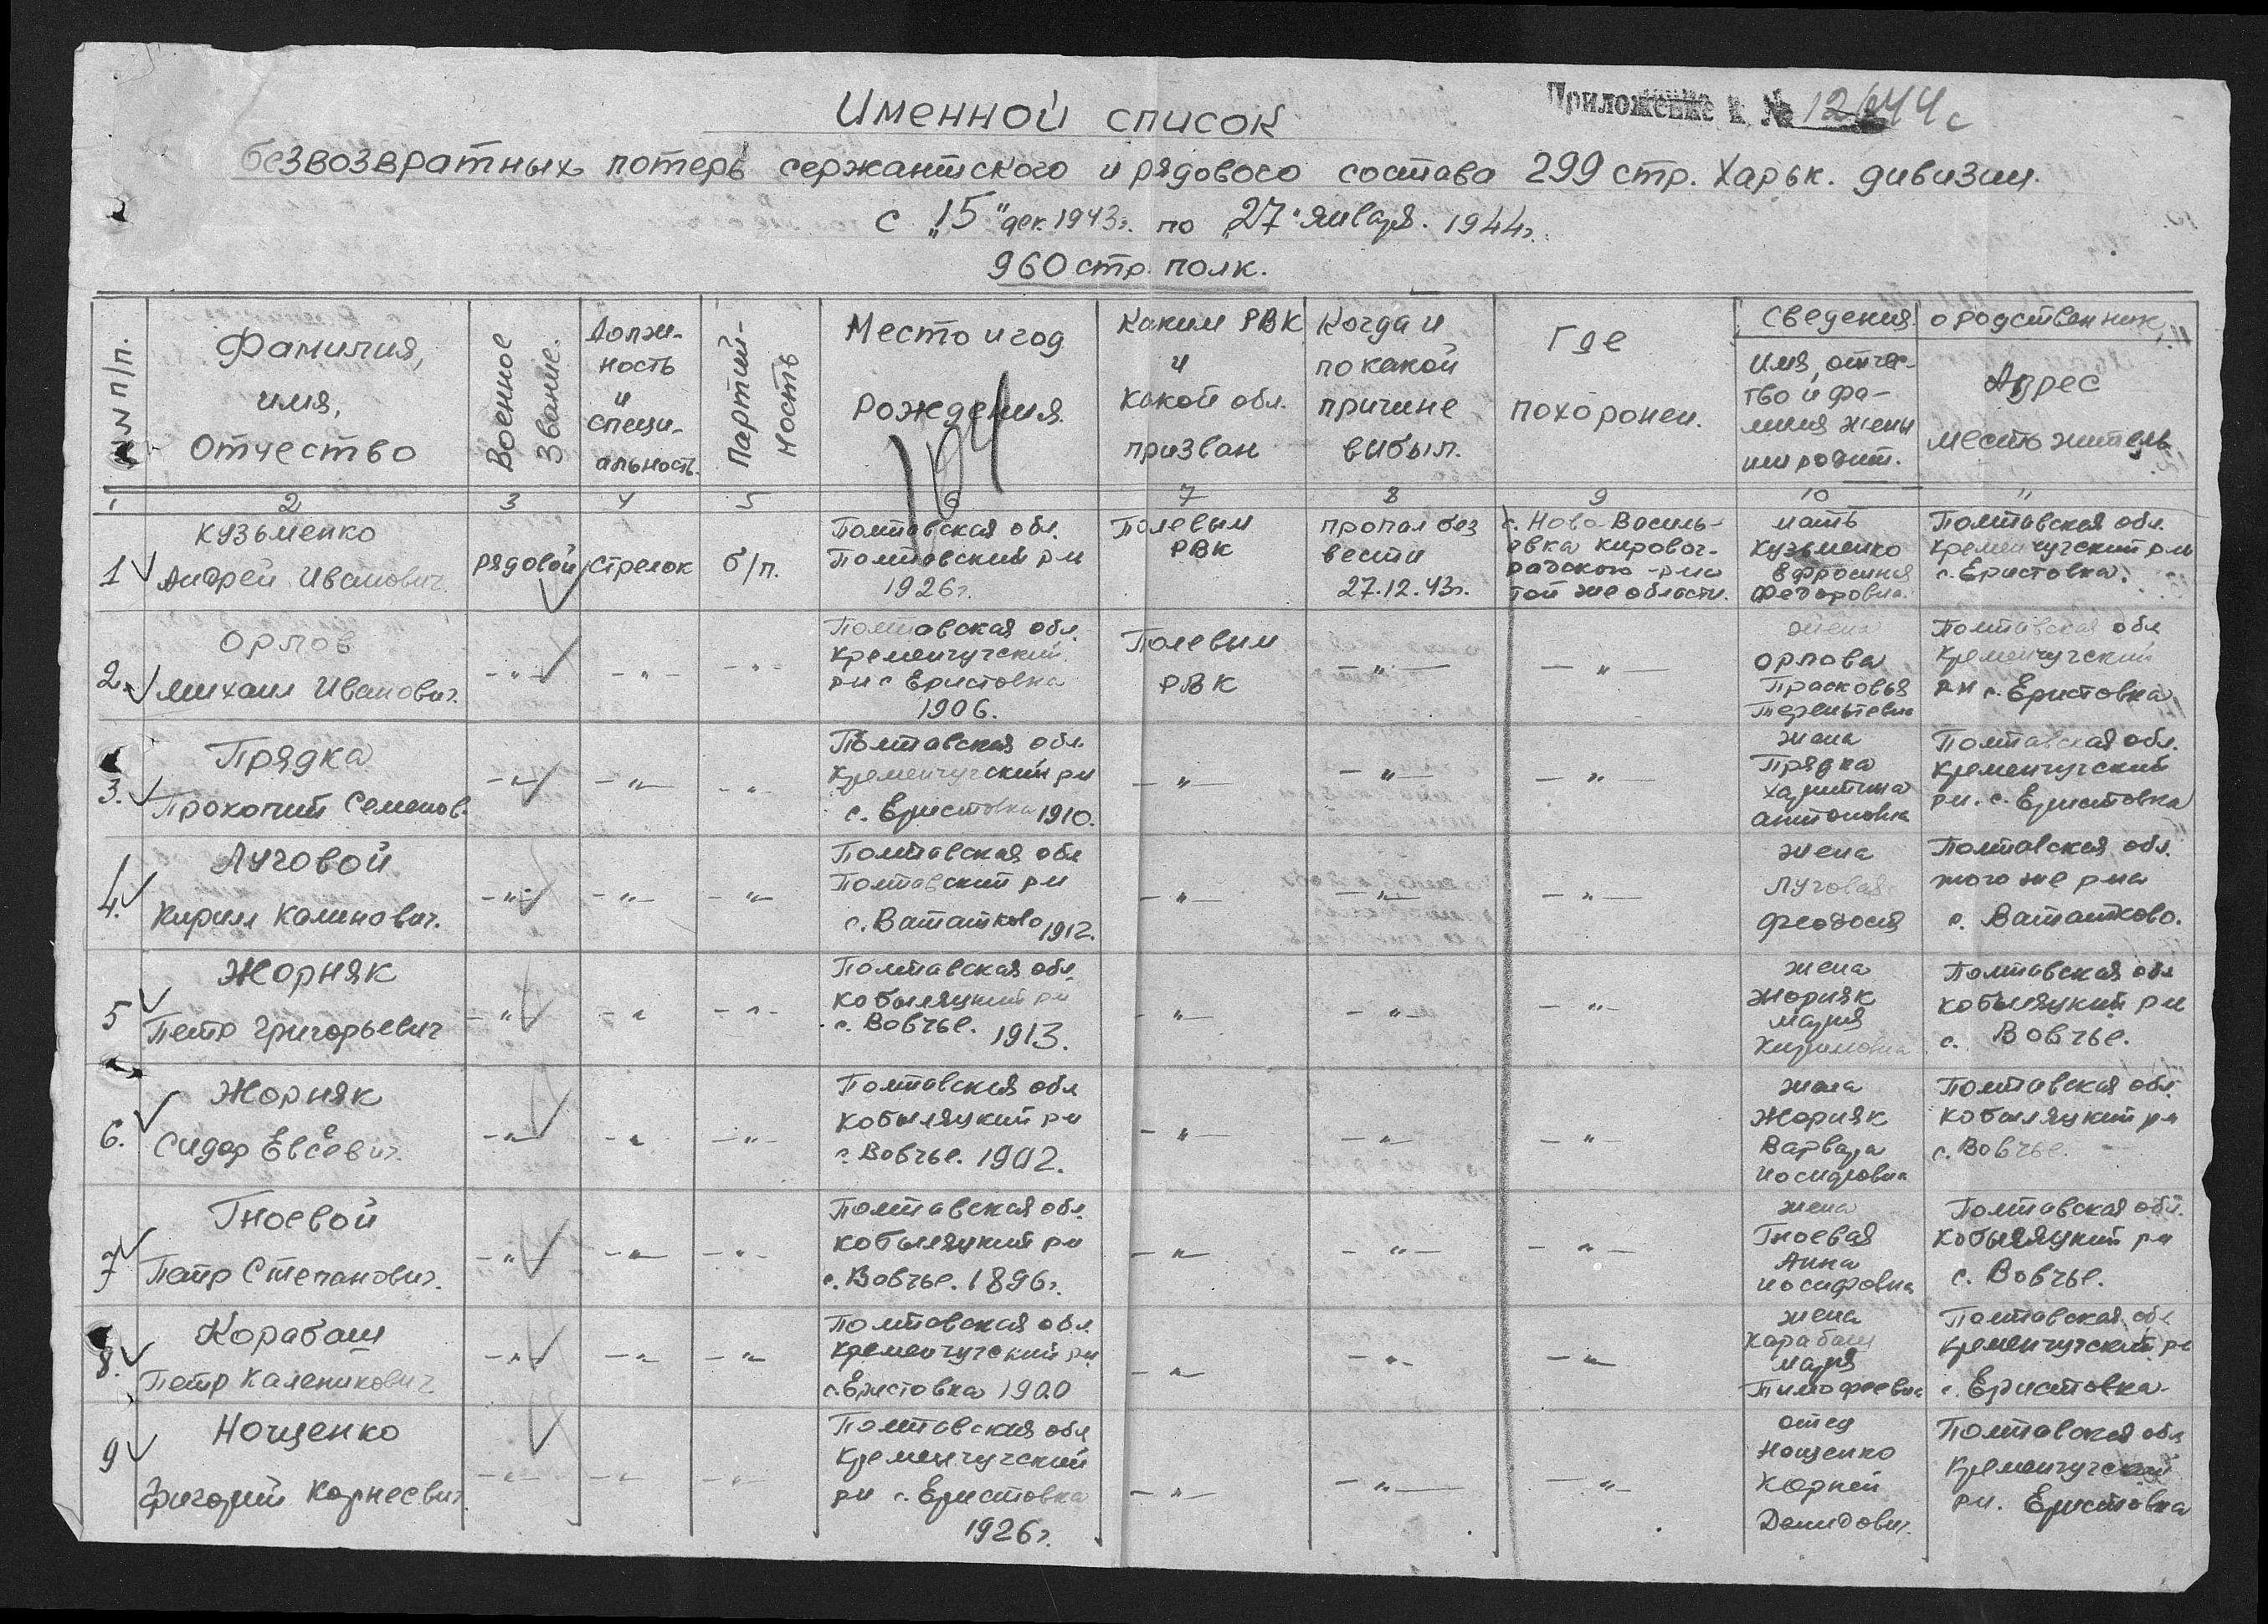 Приложение к № 12644с
Именной список
безвозвратных потерь сержантского и рядового состава 299 стр. Харьк. дивизии.
с "15" дек. 1943г. по "27" января. 1944г.
960 стр. полк.
№№ п/п.
Фамилия,
имя,
Отчество
Военное
Звание.
Должн-
ность
и
специ-
альность.
Партий-
ность
Место и год
рождения.
Каким РВК
и
какой обл.
призван
Когда и
по какой
причине
выбыл.
Где
похоронен.
Сведения о родственник.
Имя, отчес-
тво и фа-
милия жены
или родит.
Адрес
место житель.
104
1 2 3 4 5 6 7 8 9 10 11
1
Кузьменко
Андрей Иванович.
рядовой
стрелок
б/п.
Полтавская обл.
Полтавский рн
1926г.
Полевым
РВК
пропал без
вести
27.12.43г.
с. Ново-Василь-
евка Кировог-
радского р-на
той же области.
мать
Кузьменко
Ефросиния
Федоровна.
Полтавская обл.
Кременчугский рн
с. Еристовка.
2.
Орлов
Михаил Иванович.
-"- -"- -"-
Полтавская обл.
Кременчугский
рн с Еристовка
1906.
Полевым
РВК
-"- -"-
жена
Орлова
Прасковья
Терентьевна
Полтавская обл
Кременчугский
рн с. Еристовка
3.
Прядка
Прокопий Семенов.
-"- -"- -"-
Полтавская обл.
Кременчугский рн
с. Еристовка 1910.
-"- -"- -"-
жена
Прядка
Харитина
Антоновна
Полтавская обл.
Кременчугский
рн. с. Еристовка
4.
Луговой
Кирил Калинович.
-"- -"- -"-
Полтавская обл
Полтавский рн
с. Ваташково 1912.
-"- -"- -"-
жена
Луговая
Феодосия
Полтавская обл.
того же рна
с. Ваташково.
5
Жорняк
Петр Григорьевич
-"- -"- -"-
Полтавская обл.
Кобыляцкий рн
с. Вовчье. 1913.
-"- -"- -"-
жена
Жорняк
Мария
Кириловна
Полтавская обл
Кобыляцкий рн
с. Вовчье.
6.
Жорняк
Сидор Евсеевич.
-"- -"- -"-
Полтавская обл
Кобыляцкий рн
с. Вовчье. 1902.
-"- -"- -"-
жена
Жорняк
Варвара
Иосиповна
Полтавская обл.
Кобыляцкий рн
с. Вовчье.
7
Гноевой
Петр Степанович.
-"- -"- -"-
Полтавская обл.
Кобыляцкий рн
с. Вовчье. 1896г.
-"- -"- -"-
жена
Гноевая
Анна
Иосифовна
Полтавская обл.
Кобыляцкий рн
с. Вовчье.
8.
Корабаш
Петр Каленикович
-"- -"- -"-
Полтавская обл.
Кременчугский рн
с. Еристовка 1900
-"- -"- -"-
жена
Карабаш
Мария
Тимофеевна
Полтавская обл
Кременчугский рн
с. Еристовка.
9
Нощенко
Григорий Корнеевич.
-"- -"- -"-
Полтавская обл
Кременчугский
рн с. Еристовка
1926г.
-"- -"- -"-
отец
Нощенко
Корней
Демидович.
Полтавская обл
Кременчугский
рн. Еристовка